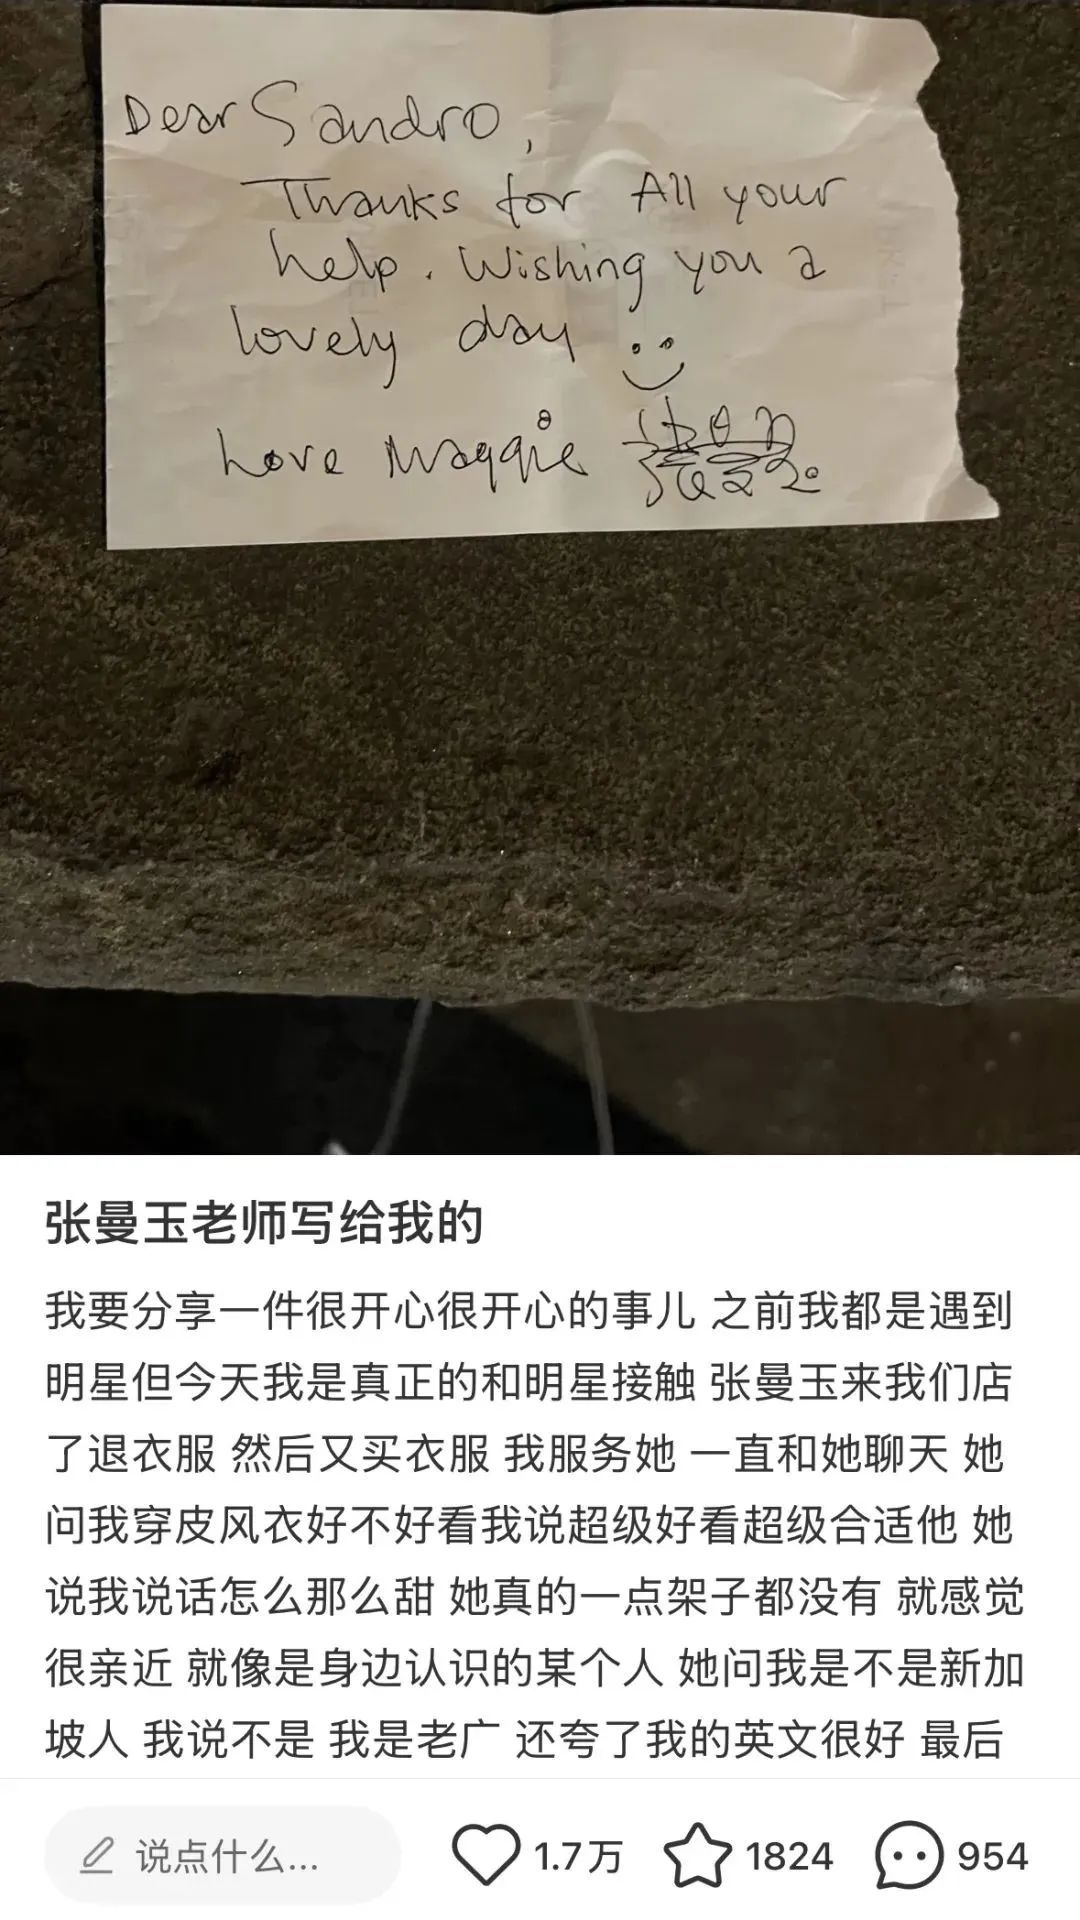 Dear Sandro,
Thanks for All your
help. Wishing you a
lovely day
Love Maggie 張曼玉
张曼玉老师写给我的
我要分享一件很开心很开心的事儿 之前我都是遇到
明星但今天我是真正的和明星接触 张曼玉来我们店
了退衣服 然后又买衣服 我服务她 一直和她聊天 她
问我穿皮风衣好不好看我说超级好看超级合适他 她
说我说话怎么那么甜 她真的一点架子都没有 就感觉
很亲近 就像是身边认识的某个人 她问我是不是新加
坡人 我说不是 我是老广 还夸了我的英文很好 最后
说点什么... 1.7万 1824 954